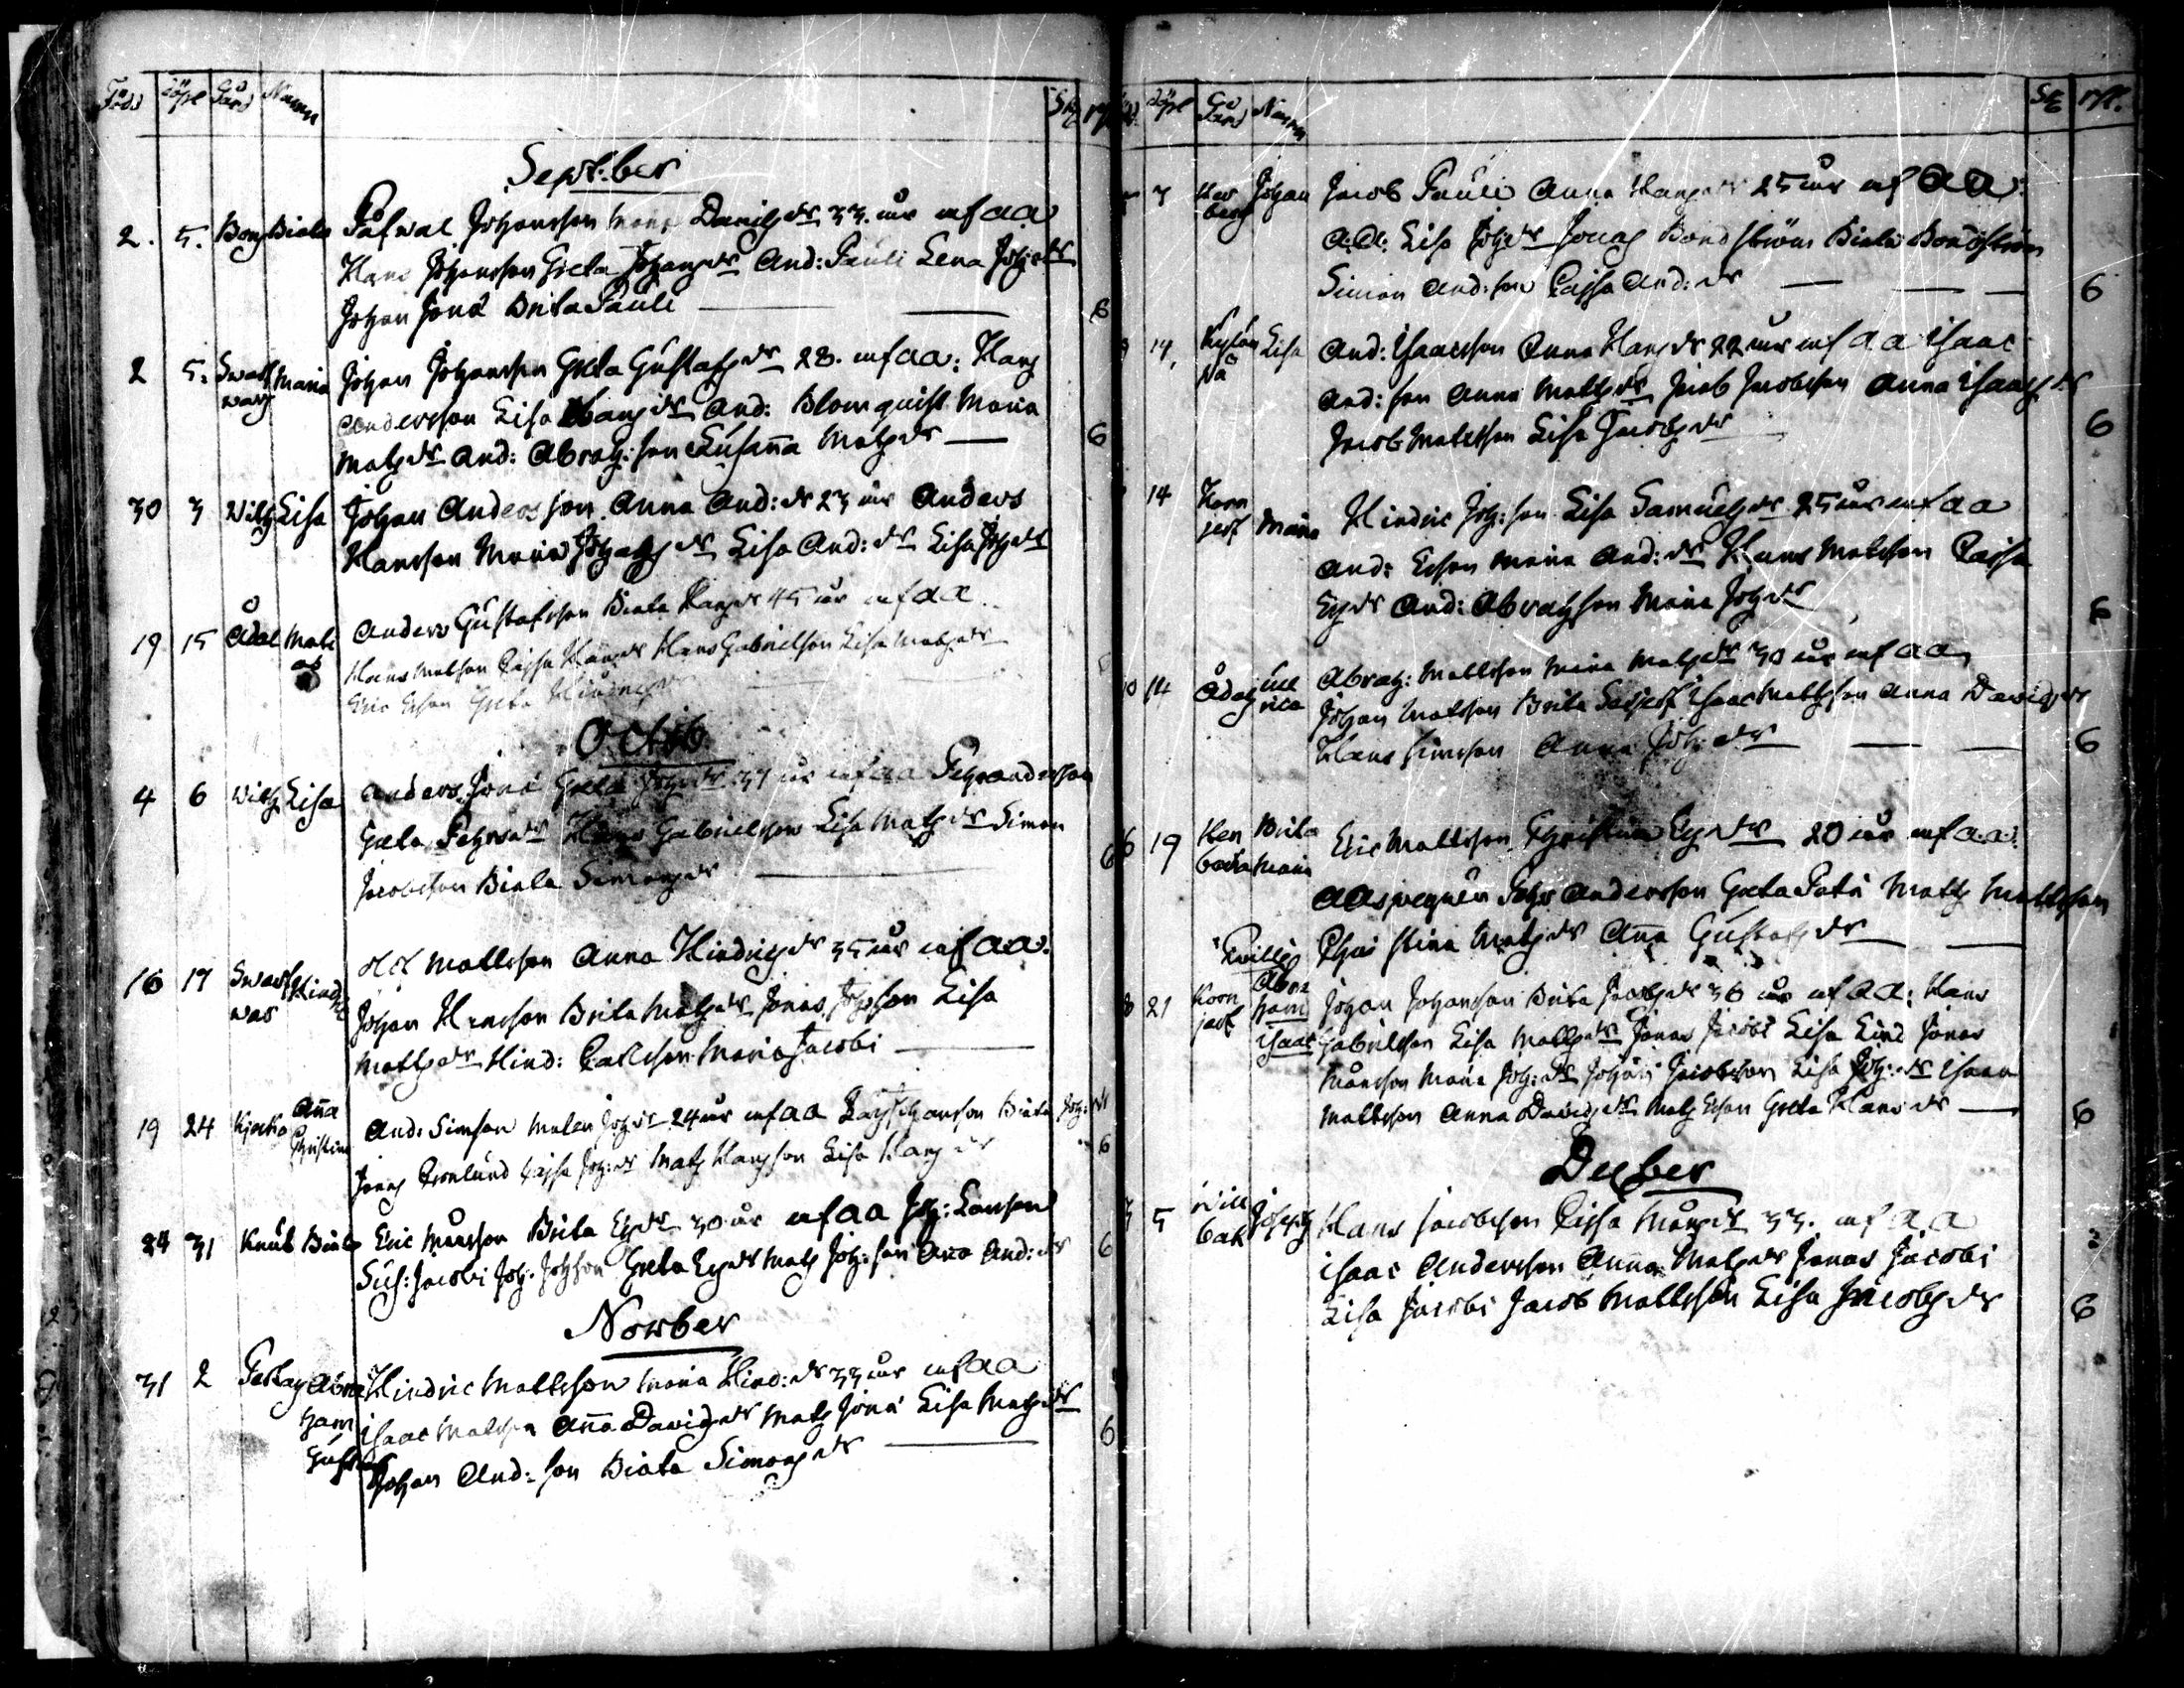 Född döpt Gård Namn Sk rf
Septber
2. 5. Bonj Birta Påfwal Johansson Maria Danielsdr 33. åar mf aa
Hans Johansson Greta Johansdr And: Pauli Lena Joh:dr
Johan Jonæ Brita Pauli — — 6
2 5. Swartwarg Maria Johan Johansson Greta Gustafsdr 28. mf aa: Hans
Andersson Lisa Hansdr And: Blomquist Maria
Matsdr And: Abrah:son Susanna Matsdr — 6
30 3 Wilg Lisa Johan Andersson Anna And:dr 23 åar Anders
Hansson Maria Johansdr Lisa And:dr Lisa Joh:dr
19 15 Ådal Mats Anders Gustafsson Birta Hansdr 45 åar mf aa
Hans Matsson Cajsa Hansdr Hans Gabrielsson Lisa Matsdr
Eric Ersson Greta Hindricsdr
Octob
4 6 Wilg Lisa Anders Jonæ Greta Joh:dr 37 åar mf aa Pehr Andersson
Greta Pehrsdr Hans Gabrielsson Lisa Matsdr Simon
Jacobsson Birta Simonsdr — 6
16 17 Swartwar Hindric Olof Mattsson Anna Hindricsdr 35 åar mf aa:
Johan Hansson Brita Matsdr Jonas Johsson Lisa
Mattsdr Hind: Carlsson Maria Jacobi —
19 24 Kjecko Anna Christina And: Simson Malen Joh:dr 24 åar mf aa Johansson Birta Joh:dr
Jonas Cronlund Cajsa Joh:dr Mats Hansson Lisa Hansdr 6
24 31 Knut Birta Eric Månsson Brita Ersdr 30 åar mf aa Joh: Larsson
Sus: Jacobi Joh: Johsson Greta Ersdr Mats Joh:son Ana And:dr 6
Nowber
31 2 Paskay Abraham Gustaf Hindric Mattsson Maria Hind:dr 33 åar mf aa
Isaac Matsson Anna Davidsdr Mats Jonæ Lisa Matsdr
Johan And:son Birta Simonsdr — 6
döpt Gård Namn Sk rf.
7 Johan Jacob Pauli Anna Hansdr 25 åar mf aa.
Lisa Joh:dr Jonas Bondström Birta Bondström
Simon And:son Cajsa And:dr — — — 6
14. Lisa And: Isaacsson Anna Hansdr 22 åar mf aa Isaac
And:son Anna Mattsdr Jacob Jacobsson Anna Isaacsdr
Jacob Matsson Lisa Jacobsdr — 6
14 Kornjerf Maria Hindric Joh:son Lisa Samuelsdr 25 åar mf aa
And: Ersson Maria And:dr Hans Matsson Cajsa
Ersdr And: Abrahsson Maria Joh:dr 6
10 14 Ådahl Ulrica Abrah: Mattsson Maria Matsdr 30 åar mf aa
Johan Matsson Brita Isaac Mattsson Anna Davidsdr
Hans Simsson Anna Joh:dr — — 6
6 19 Kenbacka Brita Maria Eric Mattsson Christina Ersdr 20 åar mf a:a:
Pehr Andersson Greta Mats Mattsson
Christina Matsdr Anna Gustafsdr — —
Twilling
8 21 Kornjerf Abraham Isaac Johan Johansson Brita Jacobsdr 36 åar mf aa: Hans
Gabrielsson Lisa Mattsdr Jonas Jacobi Lisa Lind Jonas
Månsson Maria Joh:dr Johan Jacobsson Lisa Joh:dr Isaac
Mattsson Anna Davidsdr Mats Ersson Greta Hansdr — 6
Decber
3 5 Willbak Joseph Hans Jacobsson Cajsa Månsdr 33. mf a a
Isaac Andersson Anna Matsdr Jonas Jacobi
Lisa Jacobi Jacob Mattsson Lisa Jacobsdr 6